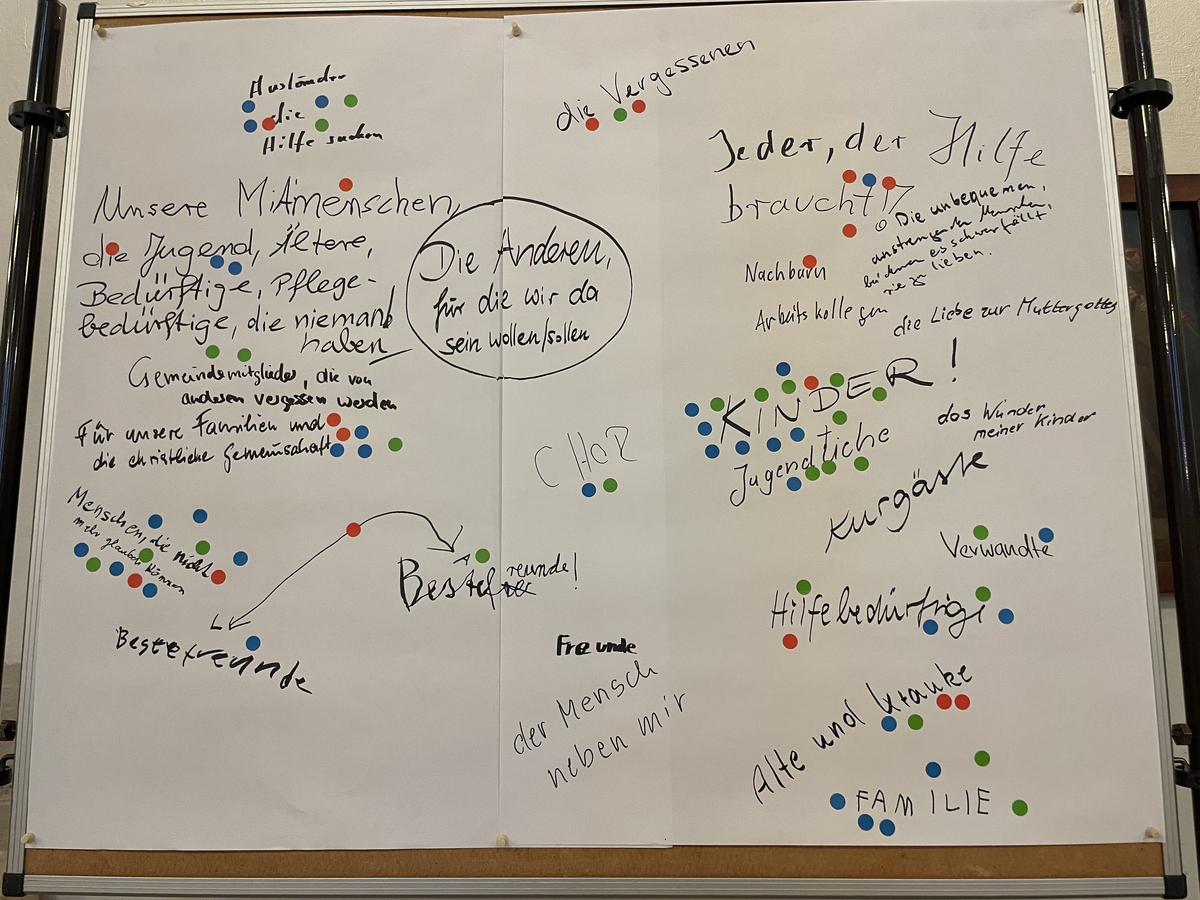 Ausländer
die
Hilfe suchen
die Vergessenen
Jeder, der Hilfe
braucht!
Die unbequemen,
anstrengenden Menschen,
bei denen es schwerfällt
sie zu lieben.
Unsere Mitmenschen,
die Jugend, Ältere,
Bedürftige, Pflege-
bedürftige, die niemand
haben
Die Anderen,
für die wir da
sein wollen/sollen
Nachbarn
Arbeitskollegen
die Liebe zur Muttergottes
Gemeindemitglieder, die von
anderen vergessen werden
KINDER!
Für unsere Familien und
die christliche Gemeinschaft
das Wunder
meiner Kinder
CHOR
Jugendliche
Kurgäste
Menschen, die nicht
mehr glauben können
Verwandte
Beste freunde!
Hilfebedürftige
Bestefreunde
Freunde
der Mensch
neben mir
Alte und kranke
FAMILIE